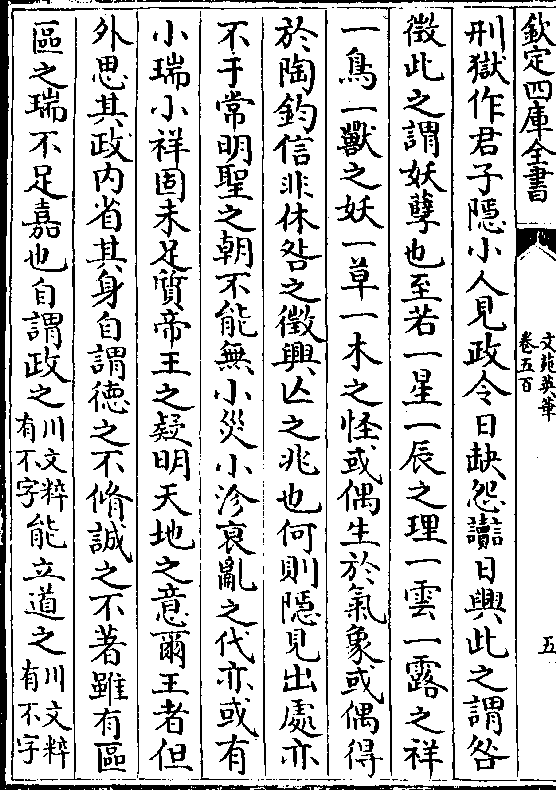 欽定四庫全書
文苑英華
卷五百
五
刑獄作君子隱小人見政令日缺怨讟日興此之謂咎
徵此之謂妖孽也至若一星一辰之理一雲一露之祥
一鳥一獸之妖一草一木之怪或偶生於氣象或偶得
於陶鈞信非休咎之徵興亾之兆也何則隱見出處亦
不于常明聖之朝不能無小災小沴衰亂之代亦或有
小瑞小祥固未足質帝王之疑明天地之意爾王者但
外思其政内省其身自謂徳之不脩誠之不著雖有區
區之瑞不足嘉也自謂政之川文粹有不字能立道之川文粹有不字